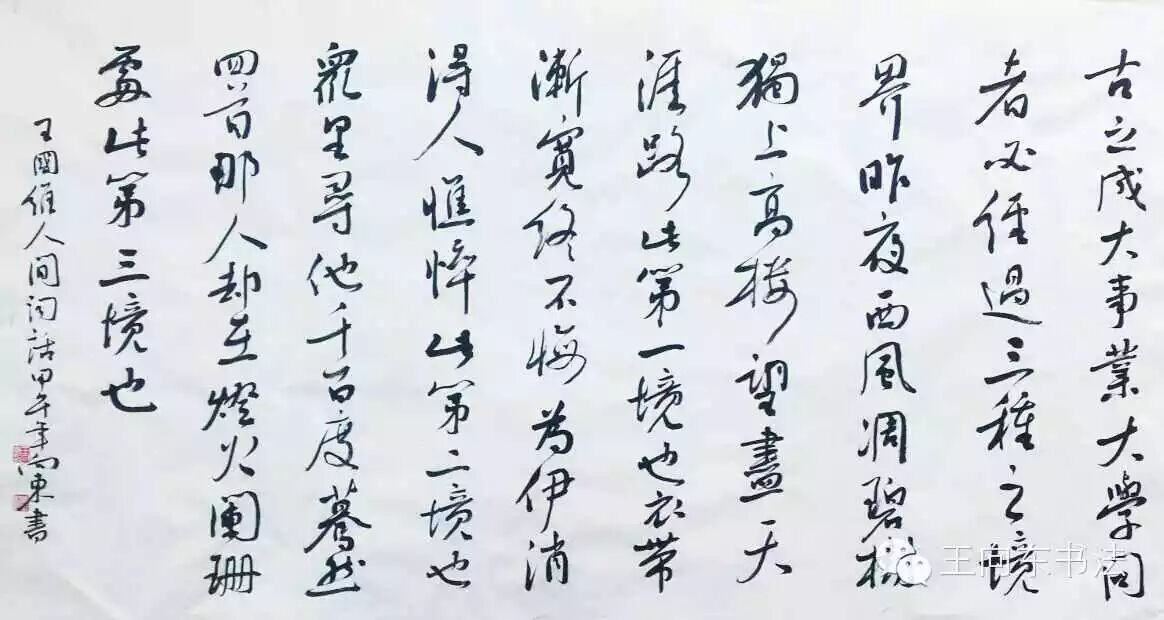 古之成大事業大學问
者必经過三種之境
界昨夜西风凋碧树
獨上高楼望盡天
涯路此第一境也衣带
漸寬终不悔為伊消
得人憔悴此第二境也
衆里尋他千百度蓦然
回首那人却在燈火阑珊
處此第三境也
王國维人间词話甲午年向東書
王向东书法